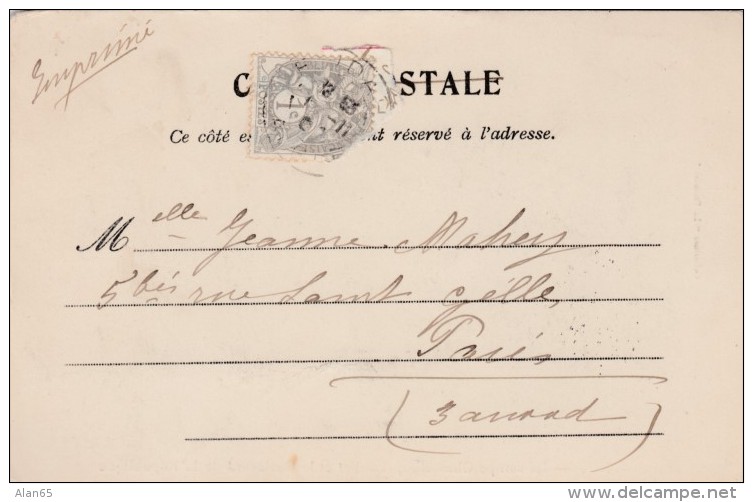 Imprimé
C STALE
Ce côté es nt réservé à l'adresse.
Melle Jeanne Mahey
5 bis rue Saint Gille
Paris
(3 arrond)
Alan65
delcampe.net